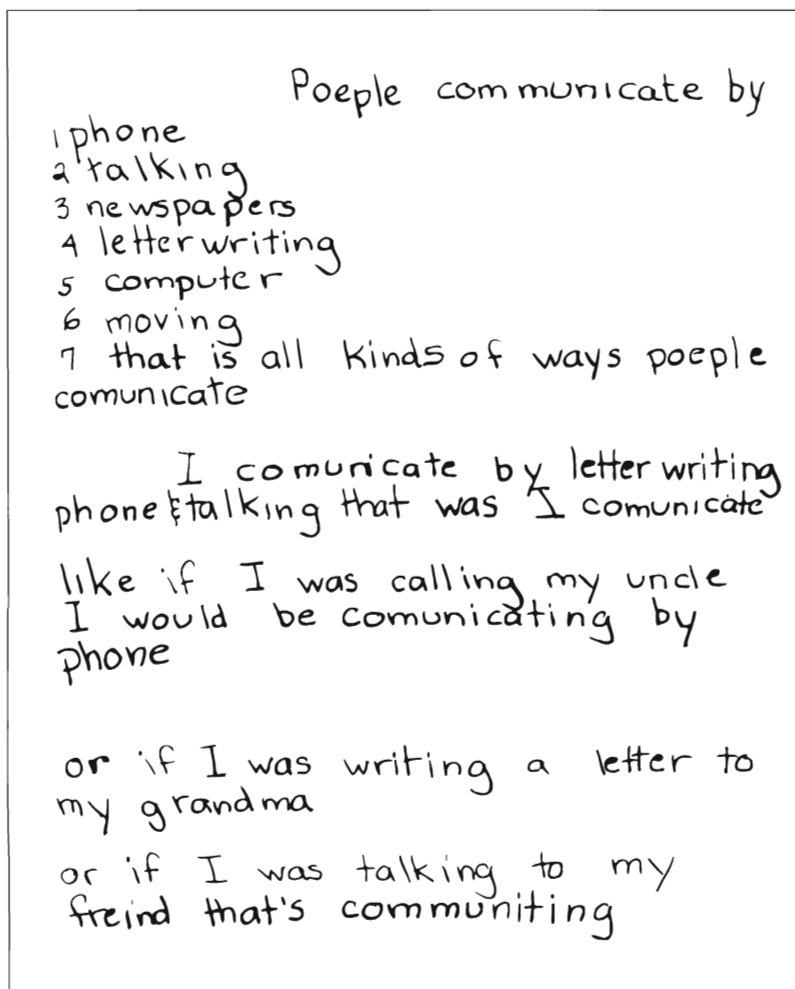 Poeple communicate by
1 phone
2 talking
3 newspapers
4 letter writing
5 computer
6 moving
7 that is all kinds of ways poeple
comunicate
I comunicate by letter writing
phone & talking that was I comunicate
like if I was calling my uncle
I would be comunicating by
phone
or if I was writing a letter to
my grandma
or if I was talking to my
freind that's communiting